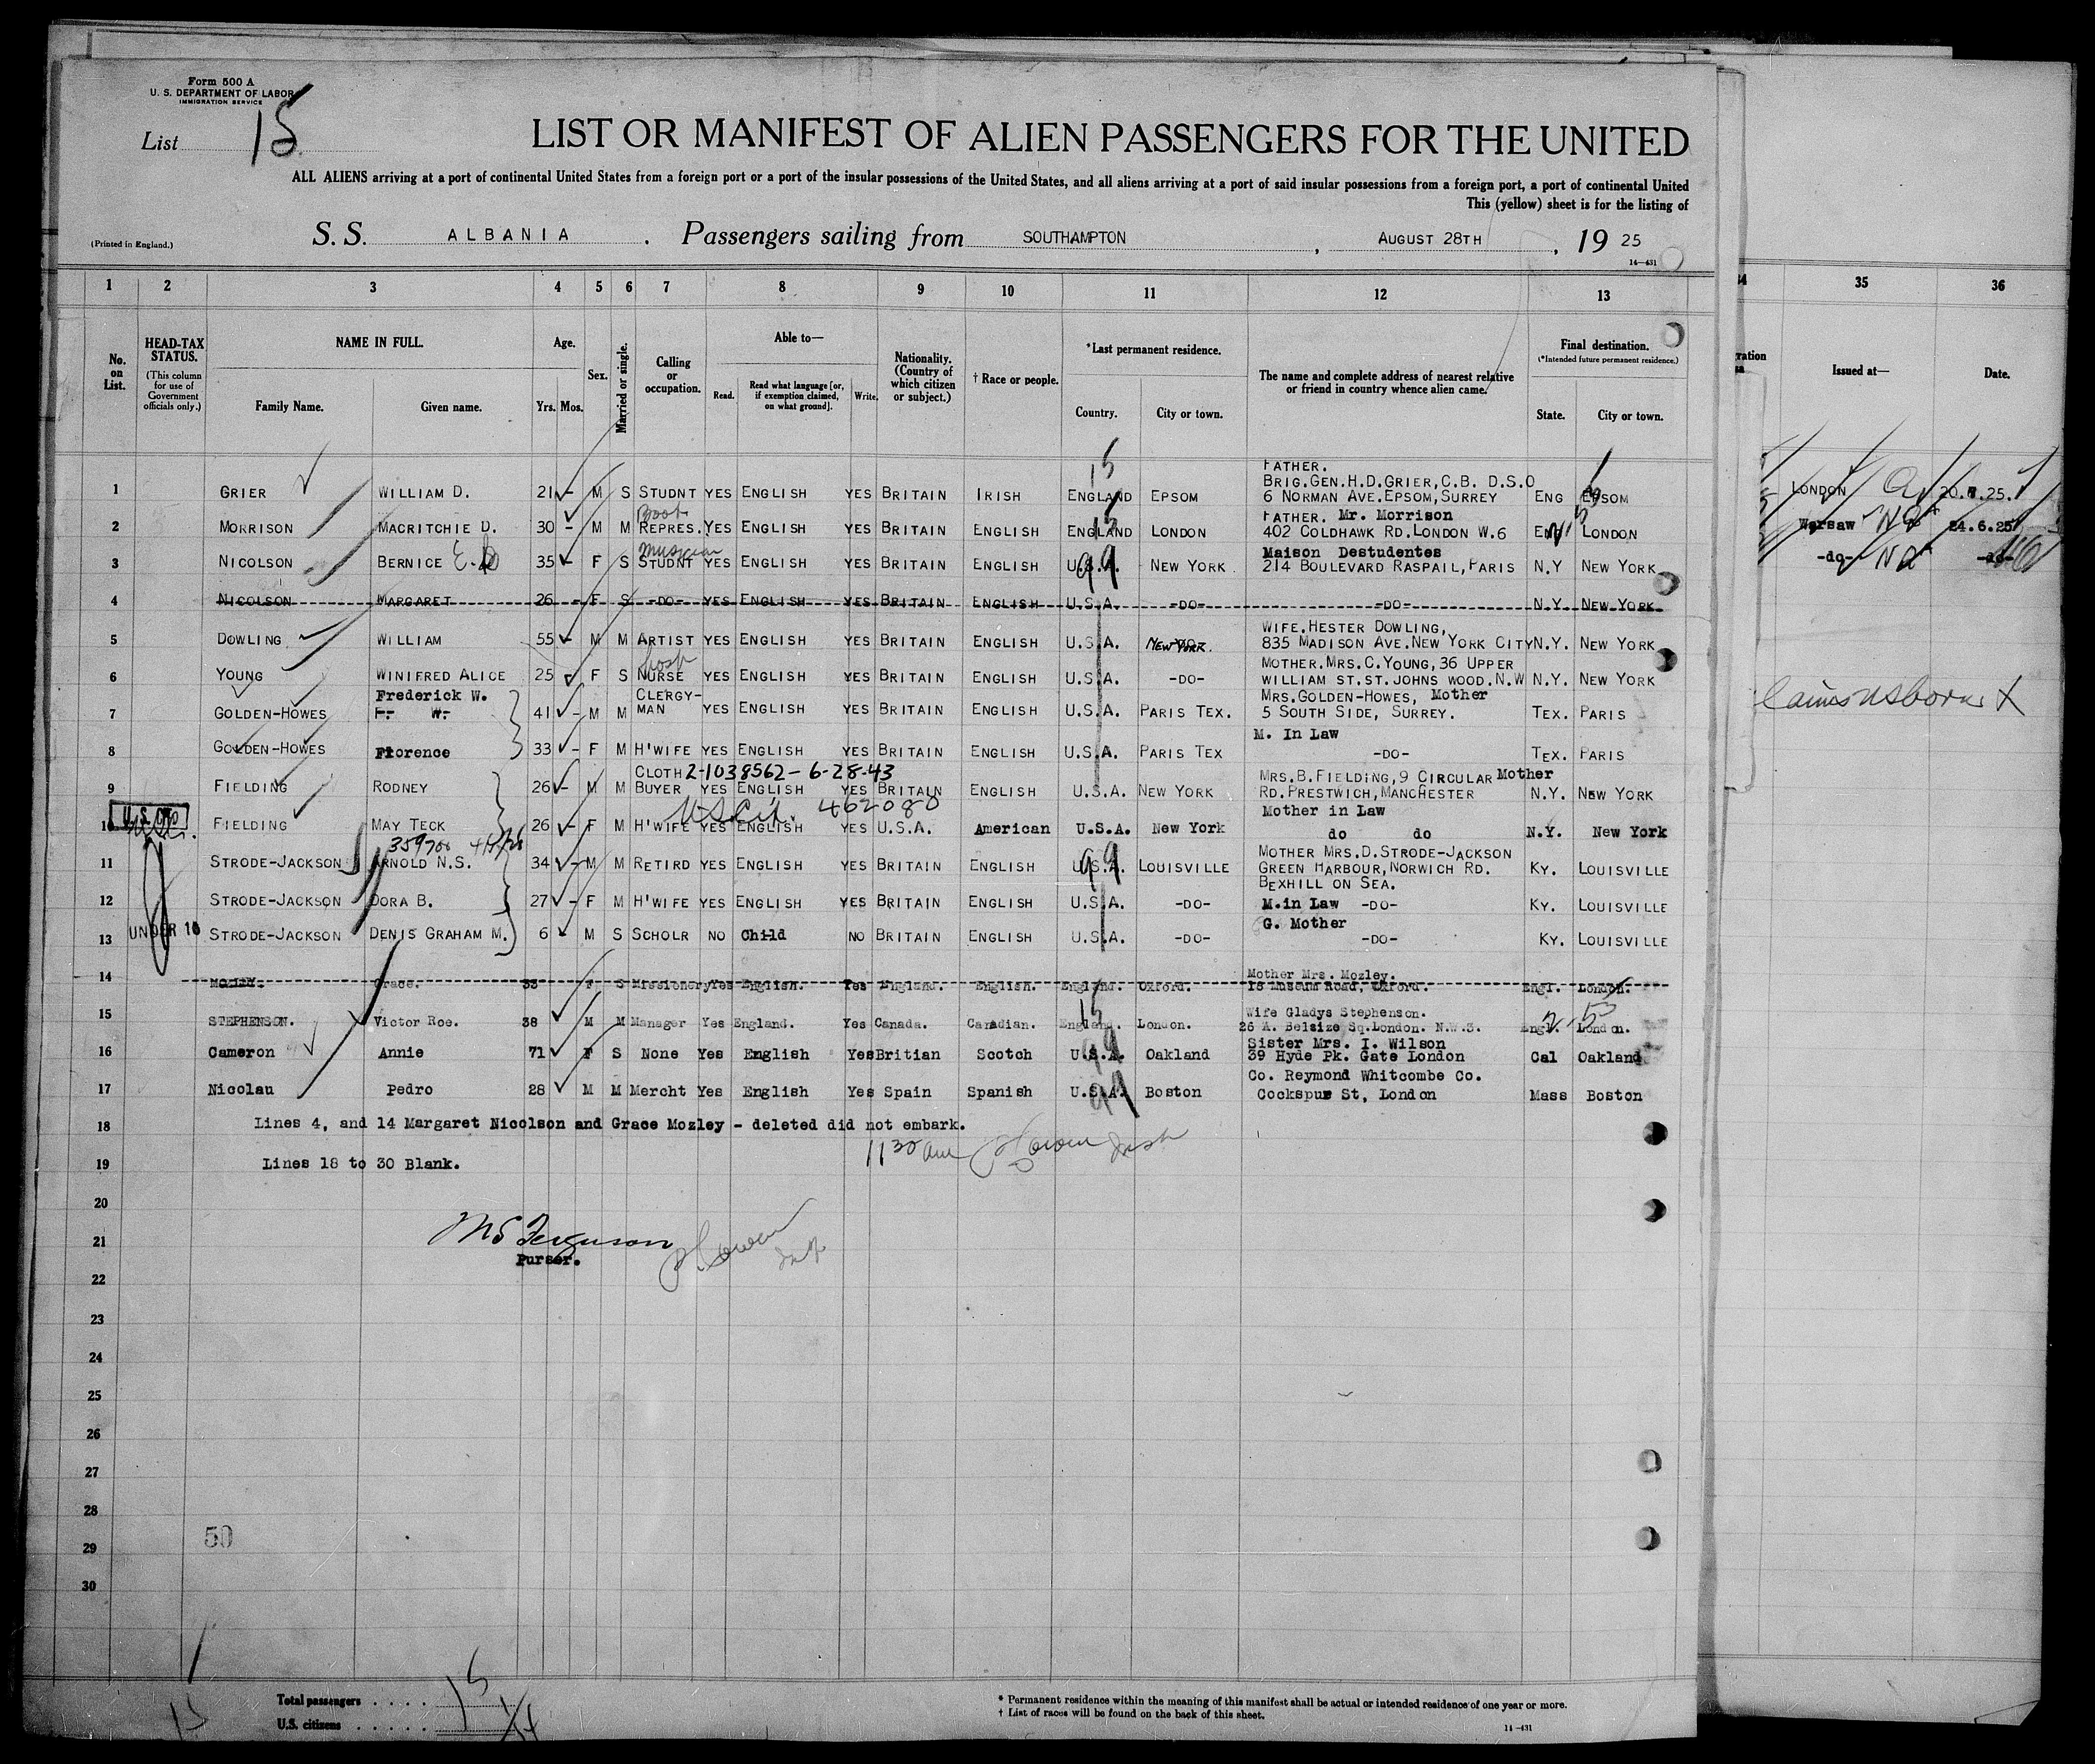 Form 500 A
U. S. DEPARTMENT OF LABOR
IMMIGRATION SERVICE
List 15
LIST OR MANIFEST OF ALIEN PASSENGERS FOR THE UNITED
ALL ALIENS arriving at a port of continental United States from a foreign port or a port of the insular possessions of the United States, and all aliens arriving at a port of said insular possessions from a foreign port, a port of continental United
This (yellow) sheet is for the listing of
(Printed in England.)
S. S. ALBANIA . Passengers sailing from SOUTHAMPTON , AUGUST 28TH , 19 25
14—431
1 2 3 4 5 6 7 8 9 10 11 12 13 35 36
No. on List.
HEAD-TAX STATUS.
(This column for use of Government officials only.)
NAME IN FULL.
Family Name. Given name.
Age.
Yrs. Mos.
Sex.
Married or single.
Calling or occupation.
Able to—
Read. Read what language [or, if exemption claimed, on what ground]. Write.
Nationality. (Country of which citizen or subject.)
† Race or people.
*Last permanent residence.
Country. City or town.
The name and complete address of nearest relative or friend in country whence alien came.
Final destination.
(*Intended future permanent residence.)
State. City or town.
Issued at— Date.
15
FATHER.
BRIG.GEN.H.D.GRIER,C.B. D.S.O
1 GRIER WILLIAM D. 21 - M S STUDNT YES ENGLISH YES BRITAIN IRISH ENGLAND EPSOM 6 NORMAN AVE.EPSOM,SURREY ENG EPSOM LONDON 20.7.25.
Boot FATHER. Mr. Morrison
2 MORRISON MACRITCHIE D. 30 - M M REPRES. YES ENGLISH YES BRITAIN ENGLISH ENGLAND LONDON 402 COLDHAWK RD.LONDON W.6 ENG LONDON Warsaw 24.6.25
musician Maison Destudentes
3 NICOLSON BERNICE E. 35 - F S STUDNT YES ENGLISH YES BRITAIN ENGLISH U.S.A. NEW YORK 214 BOULEVARD RASPAIL,PARIS N.Y NEW YORK -do- -do-
4 NICOLSON MARGARET 26 - F S -DO- YES ENGLISH YES BRITAIN ENGLISH U.S.A. -DO- -DO- N.Y. NEW YORK
WIFE.HESTER DOWLING,
5 DOWLING WILLIAM 55 - M M ARTIST YES ENGLISH YES BRITAIN ENGLISH U.S.A. NEW YORK. 835 MADISON AVE.NEW YORK CITY N.Y. NEW YORK
MOTHER.MRS.C.YOUNG,36 UPPER
6 YOUNG WINIFRED ALICE 25 F S NURSE YES ENGLISH YES BRITAIN ENGLISH U.S.A. -DO- WILLIAM ST.ST.JOHNS WOOD.N.W N.Y. NEW YORK
Frederick W. CLERGY- MRS.GOLDEN-HOWES, Mother
7 GOLDEN-HOWES F. W. 41 - M M MAN YES ENGLISH YES BRITAIN ENGLISH U.S.A. PARIS TEX. 5 SOUTH SIDE, SURREY. TEX. PARIS
M. In Law
8 GOLDEN-HOWES Florence 33 - F M H'WIFE YES ENGLISH YES BRITAIN ENGLISH U.S.A. PARIS TEX -DO- TEX. PARIS
CLOTH 2-1038562 - 6-28-43 MRS.B.FIELDING,9 CIRCULAR Mother
9 FIELDING RODNEY 26 - M M BUYER YES ENGLISH YES BRITAIN ENGLISH U.S.A. NEW YORK RD.PRESTWICH,MANCHESTER N.Y. NEW YORK
U.S. Cit. 462080 Mother in Law
10 FIELDING MAY TECK 26 - F M H'WIFE YES ENGLISH YES U.S.A. American U.S.A. New York do do N.Y. New York
359700 MOTHER MRS.D.STRODE-JACKSON
11 STRODE-JACKSON ARNOLD N.S. 34 - M M RETIRD YES ENGLISH YES BRITAIN ENGLISH U.S.A. LOUISVILLE GREEN HARBOUR,NORWICH RD. KY. LOUISVILLE
BEXHILL ON SEA.
12 STRODE-JACKSON DORA B. 27 - F M H'WIFE YES ENGLISH YES BRITAIN ENGLISH U.S.A. -DO- M.in Law -DO- KY. LOUISVILLE
G. Mother
13 UNDER 16 STRODE-JACKSON DENIS GRAHAM M. 6 M S SCHOLR NO Child NO BRITAIN ENGLISH U.S.A. -DO- -DO- KY. LOUISVILLE
Mother Mrs. Mozley.
14 MOZLEY. Grace. 33 F S Missionery Yes English. Yes England. English. England. Oxford. 18 Museum Road, Oxford. Engl. London.
Wife Gladys Stephenson.
15 STEPHENSON. Victor Roe. 38 M M Manager Yes England. Yes Canada. Canadian. England. London. 26 A. Belsize Sq.London. N.W.3. Engl. London.
Sister Mrs. I. Wilson
16 Cameron Annie 71 F S None Yes English Yes Britian Scotch U.S.A. Oakland 39 Hyde Pk. Gate London Cal Oakland
Co. Reymond Whitcombe Co.
17 Nicolau Pedro 28 M M Mercht Yes English Yes Spain Spanish U.S.A. Boston Cockspur St, London Mass Boston
18 Lines 4, and 14 Margaret Nicolson and Grace Mozley - deleted did not embark.
1130 am
19 Lines 18 to 30 Blank.
20
21 M S Ferguson
Purser.
22
23
24
25
26
27
28
29
50
30
Total passengers . . . . 15
U.S. citizens . . . . .
* Permanent residence within the meaning of this manifest shall be actual or intended residence of one year or more.
† List of races will be found on the back of this sheet.
14—431